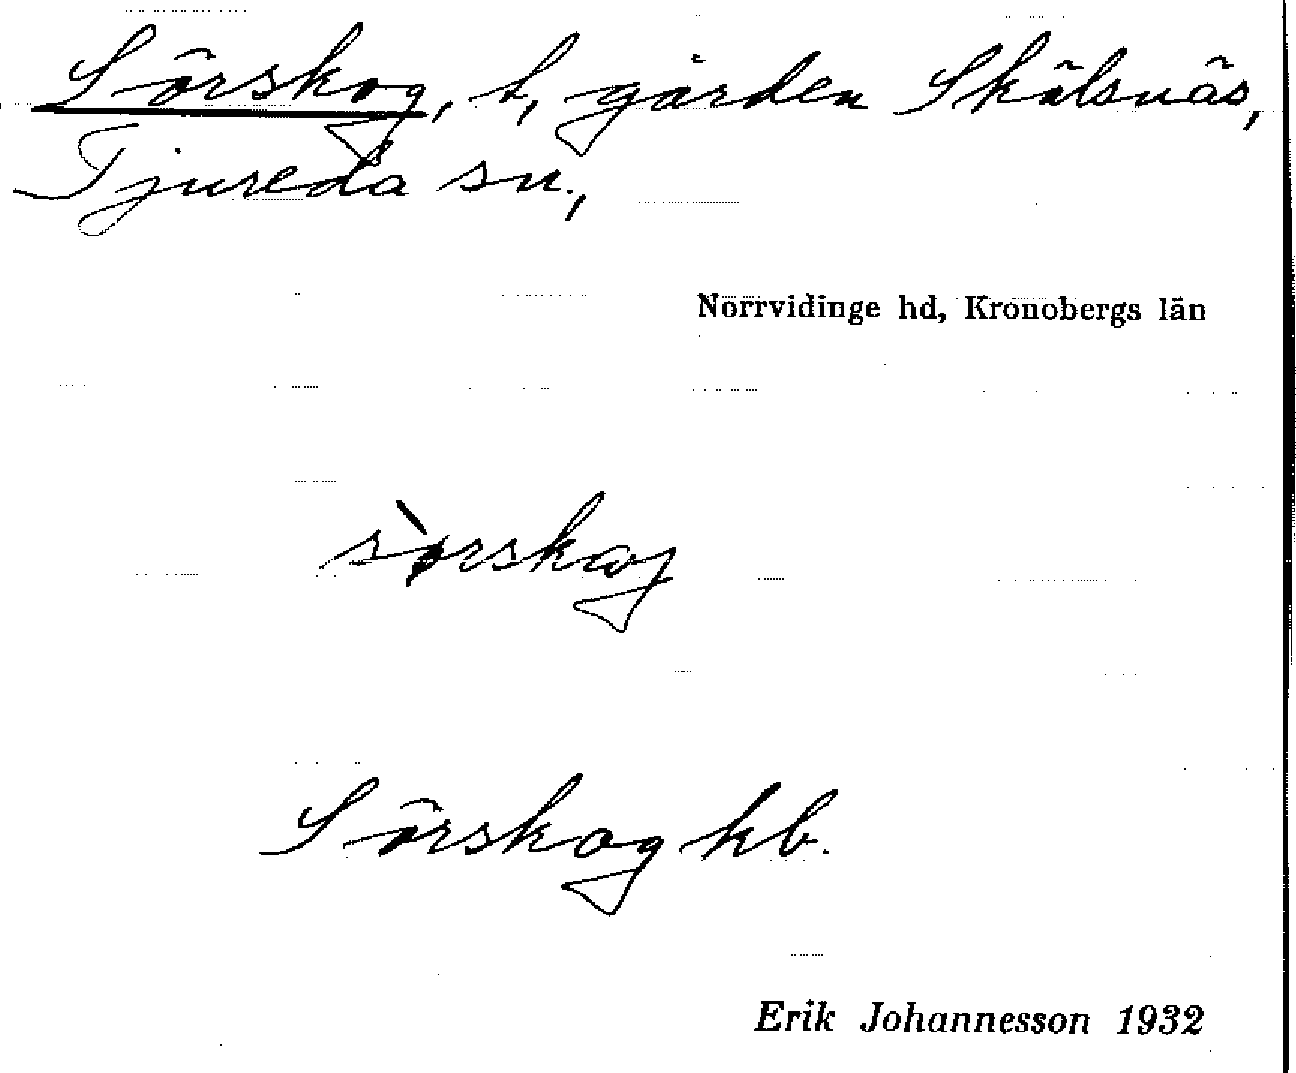 Sörskog, t, gården Skälsnäs,
Tjureda sn.,
Norrvidinge hd, Kronobergs län
sòrskog
Sörskog hb.
Erik Johannesson 1932